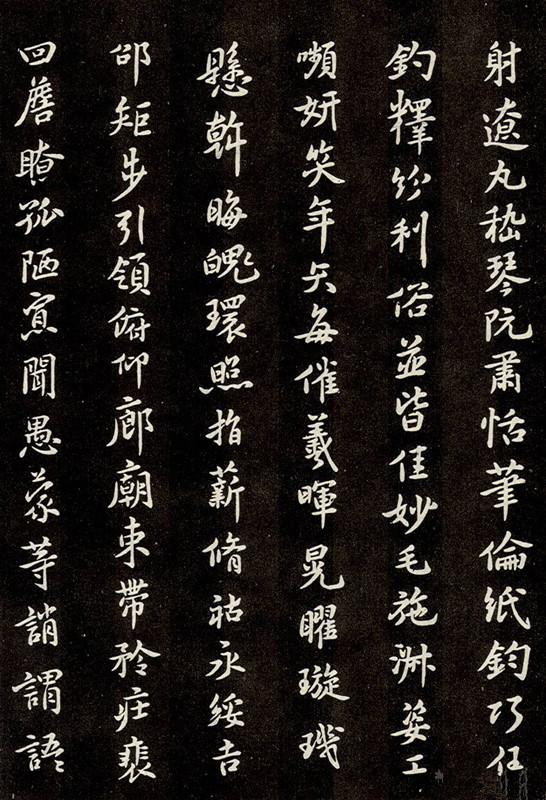 射遼丸嵇琴阮肅恬筆倫紙鈞巧任
釣釋紛利俗並皆佳妙毛施淑姿工
嚬妍笑年矢每催羲暉晃曜璇璣
懸斡晦魄環照指薪脩祜永綏吉
邵矩步引領俯仰廊廟束帶矜莊裴
回瞻眺孤陋寡聞愚蒙等誚謂語